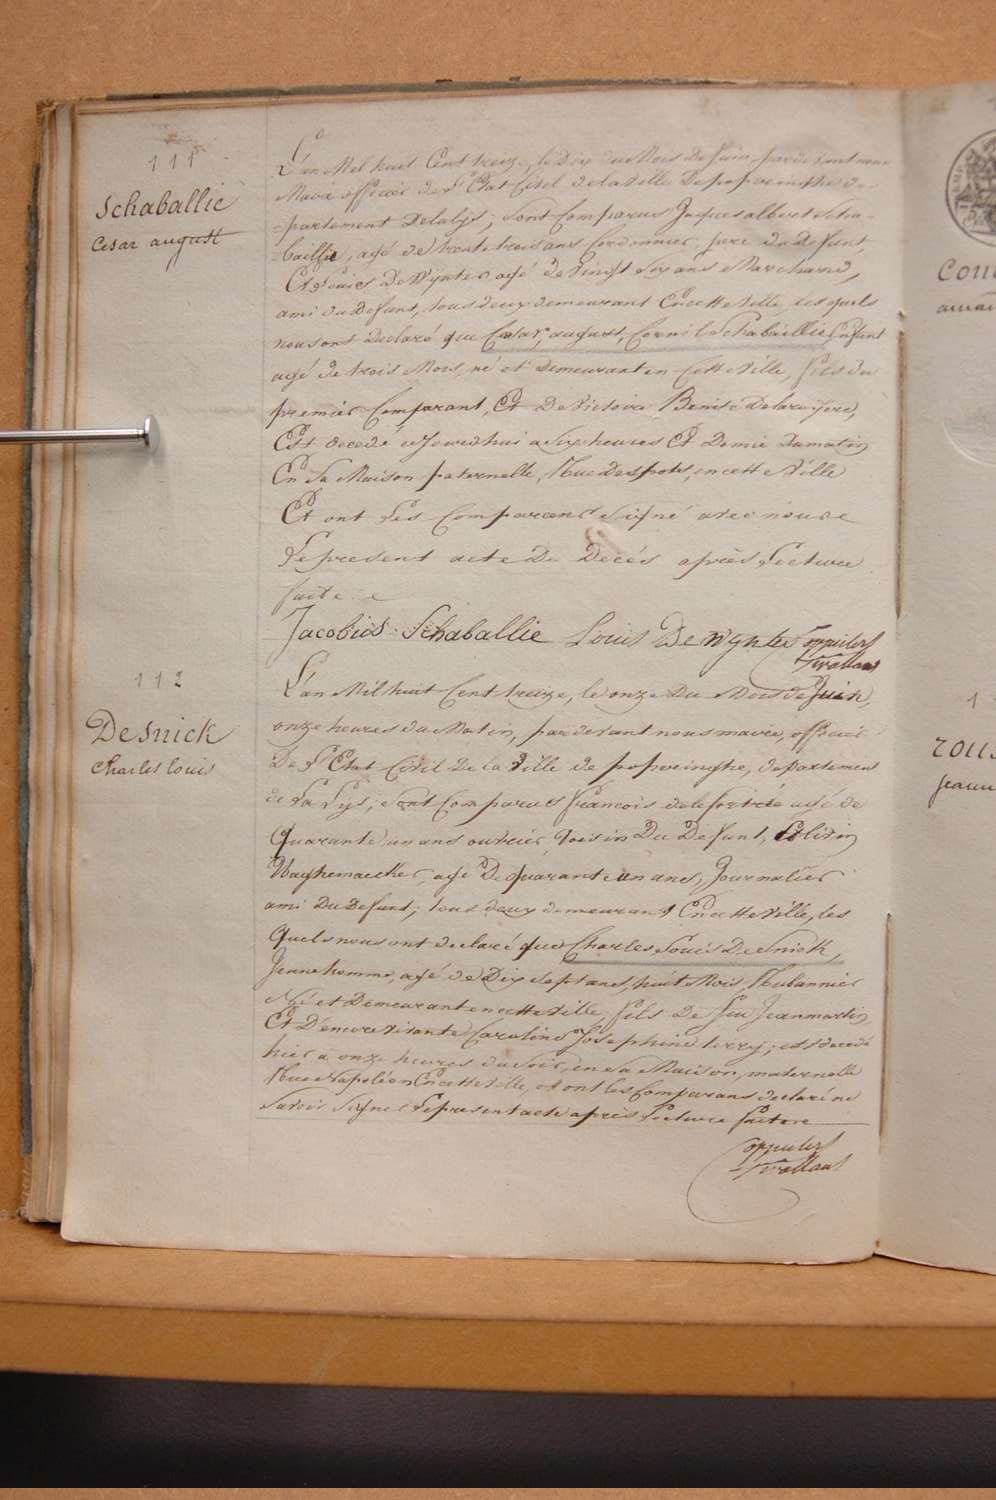 111
Schaballie
Cesar august
L'an Mil huit Cent treize, le Dix du Mois De Juin, pardevant nous
Maire officier de l'Etat Civil de la Ville De poperinghe de-
-partement De la lijs, sont Comparus Jaques albert Scha-
-baillie, agé de trente trois ans Cordonnier, pere du Defunt,
Et Louis De Wynter agé de Vingt Six ans Marchand,
ami du Defunt, tous deux demeurant En cette Ville, les quels
nous ont Declaré que Cesar, august, Cornil Schabaillie, Enfant
agé de trois Mois, né et demeurant en Cette Ville, fils du
premier Comparant, Et De Victoire Benite Delaruyere,
Est decedé aujourdhui a Six heures Et Demie du matin
En Sa Maison paternelle, Rue des pots, en cette Ville
Et ont Les Comparans Signé avec nous
Le present acte De Decés après Lecture
faite
Jacobus Schaballie Louis De Wynter
112
Desnick
Charles louis
L'an Mil huit Cent treize, le onze du Mois de Juin,
onze heures du Matin, pardevant nous maire, officier
De l'Etat Civil de la Ville de poperinghe, departement
de La Lys, sont Comparus francois delefortrie agé de
Quarante un ans ouvrier, Voisin Du Defunt, et livin
Waghemaecker, agé De quarante un ans, Journalier
ami Du Defunt, tous deux demeurant En cette Ville, les
Quels nous ont declaré que Charles Louis De Snick,
Jeune homme, agé de Dix Sept ans, huit Mois, Rubannier
Né et Demeurant en cette Ville, fils De feu Jean martin
Et D'encore vivante Caroline Josephine terry; est decedé
hier a onze heures du Soir, en sa Maison, maternelle
Rue Napoléon En cette Ville, et ont les Comparans declaré ne
Savoir Signer Le present acte après Lecture faite